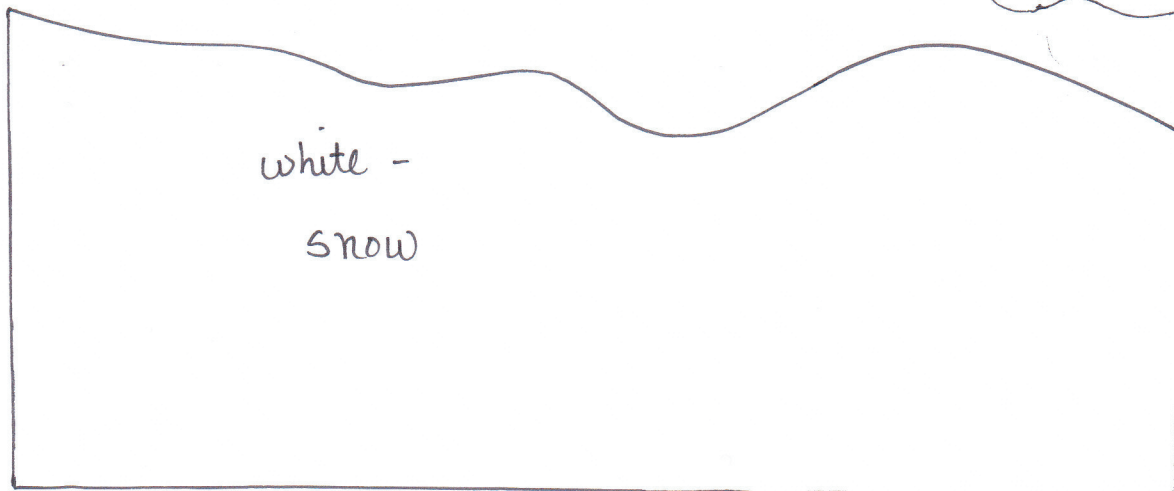 white -
snow